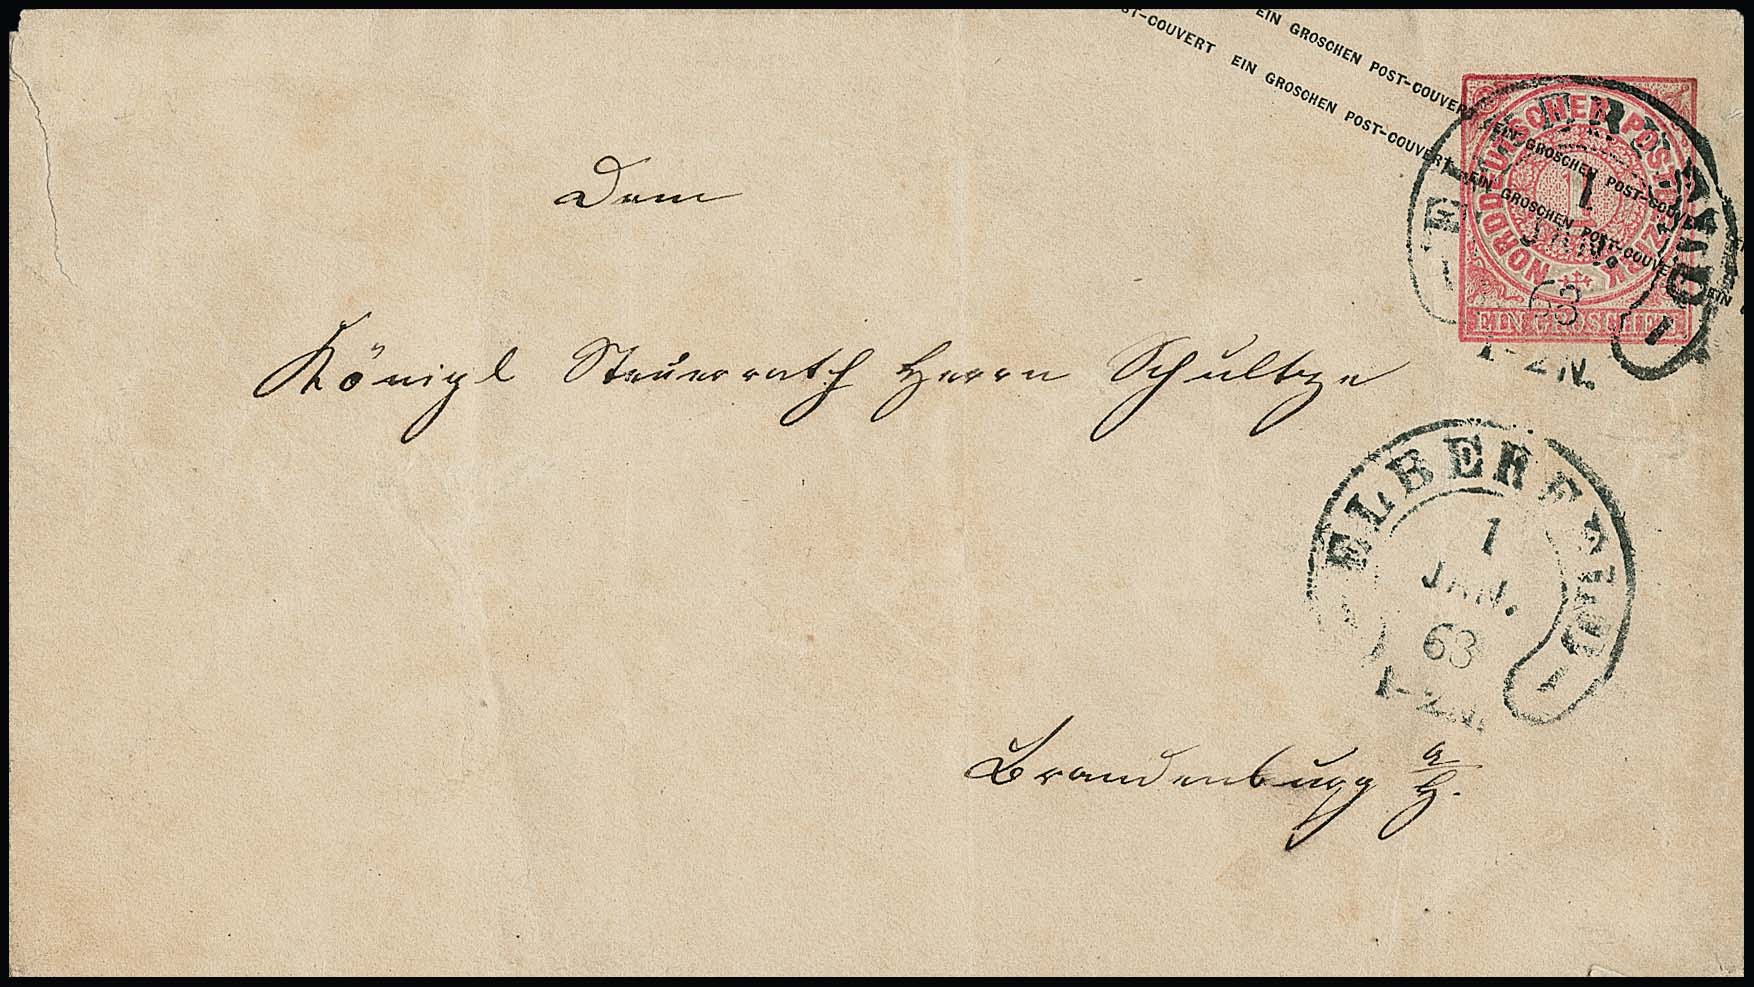 ST-COUVERT EIN GROSCHEN POST-COUVERT EIN GROSCHEN POST-COUVERT EIN
EIN GROSCHEN POST-COUVERT EIN GROSCHEN POST-COUVERT EIN
NORDDEUTSCHER POSTBEZIRK
1
EIN GROSCHEN
ELBERFELD
1
JAN.
63
1-2N.
1
Dem
Königl Steuerrath Herrn Schultze
ELBERFELD
1
JAN.
63
1-2N.
1
Brandenburg a/H.